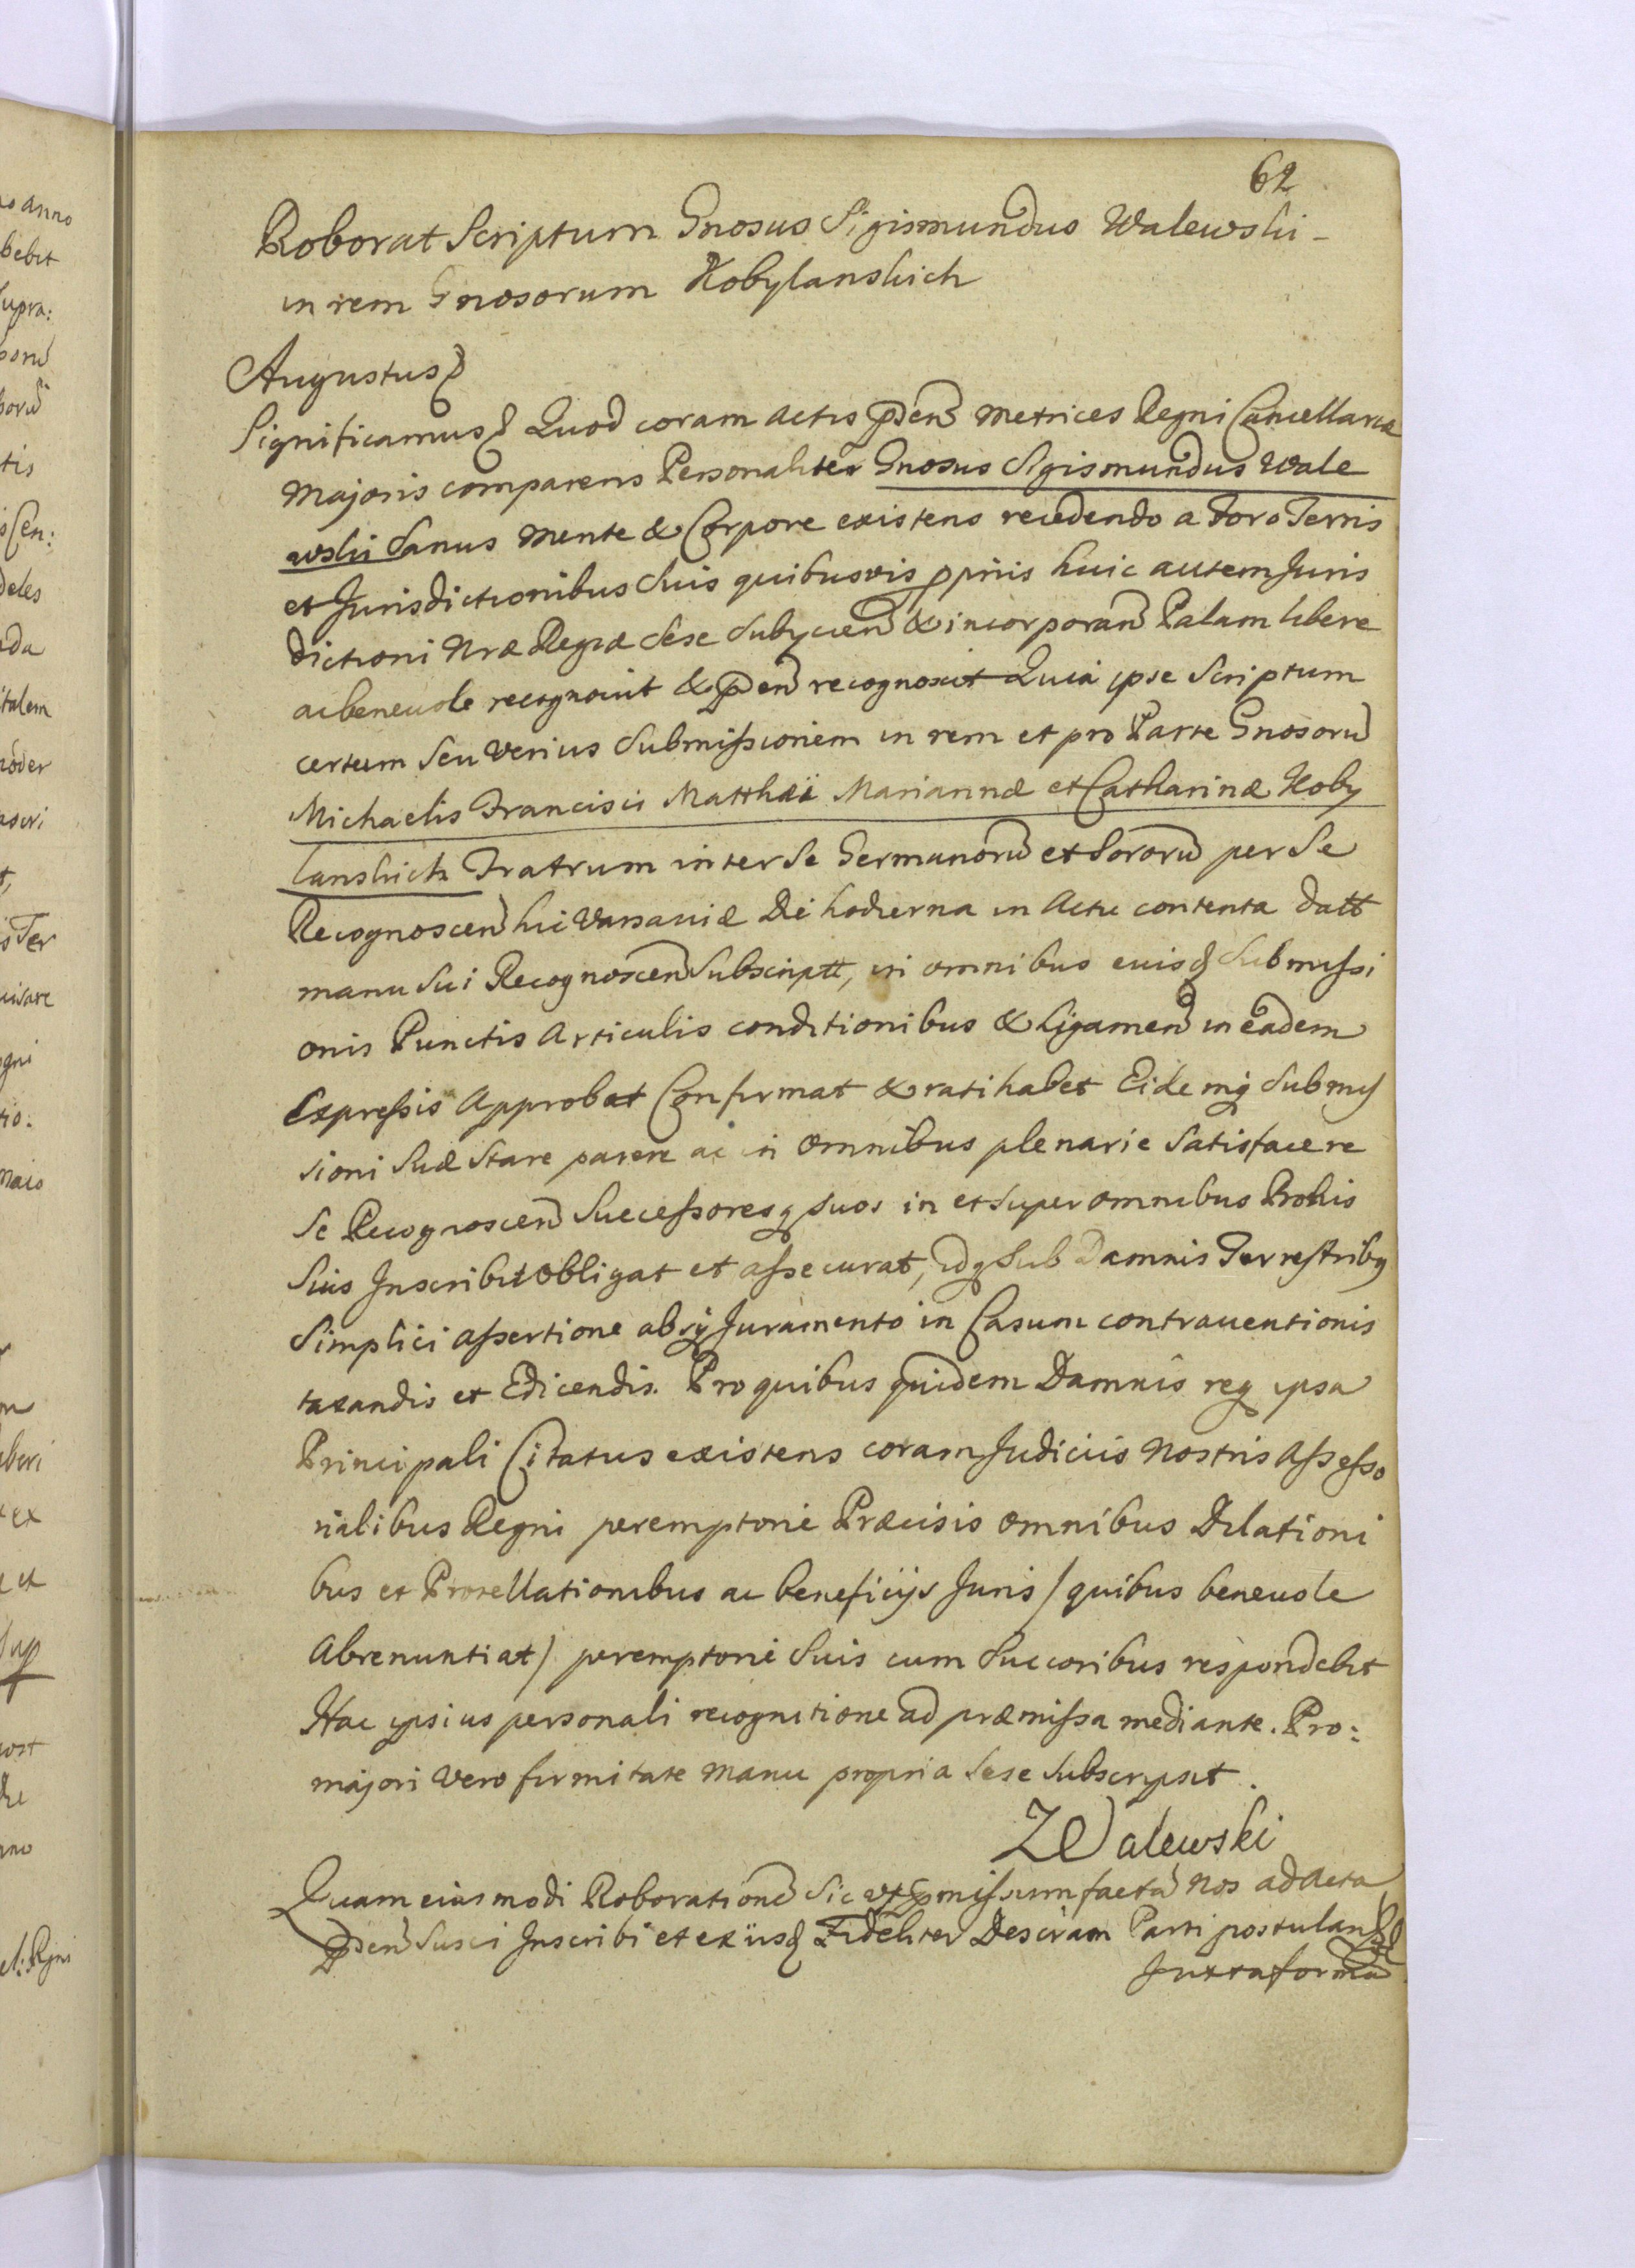 62
Roborat Scriptum Gnosus Sigismundus Walewski
in rem Gnosorum Kobylanskich
Augustus
Significamus Quod coram Actis pńsen Metrices Regni Cancellariæ
Majoris comparens Personaliter Gnosus Sigismundus Wale
wski Sanus Mente & Corpore existens recedendo a Foro Terris
et Jurisdictionibus Suis quibusvis ppriis huic autem Juris
dictioni Nræ Regiæ Sese Subycien & incorporan Palam libere
ac beneuole recognouit & pńsen recognoscit Quia ipse Scriptum
certum Seu Verius Submissionem in rem et pro Parte Gnosoru
Michaelis Francisci Matthæi Mariannæ et Catharinæ Koby
lanskich Fratrum inter Se Germanoru et Sororu per Se
Recognoscen hic Varsaviæ Die hodierna in Actu contenta datt
manu Sui Recognoscen Subscriptt, in omnibus euisq Submissi
onis Punctis Articulis conditionibus & Ligamen in eadem
Expressis Approbat Confirmat & ratihabet Eidemq Submis
sioni Suæ Stare parere ac in omnibus plenarie Satisfacere
Se Recognoscen Successoresq suos in et Super omnibus Bohis
Suis Inscribit Obligat et assecurat, idq Sub Damnis Terrestribq
Simplici assertione absq Juramento in Casum contrauentionis
taxandis et Edicendis. Pro quibus quidem Damnis req ipsa
Principali Citatus existens coram Judiciis Nostris Assesso
rialibus Regni peremptorie Præcisis omnibus Dilationi
bus et Provellationibus ac beneficijs Juris / quibus beneuole
Abrenuntiat / peremptorie Suis cum Succoribus respondebit
Hac ipsius personali recognitione ad præmissa mediante. Pro:
majori Vero firmitate Manu propria Sese Subscripsit.
ZWalewski
Quam eius modi Roboratione Sic ut pmissum facta Nos ad Acta
pńsen Susci Inscribi et ex iisq Fideliter Descram Parti postulan
Juxta forma